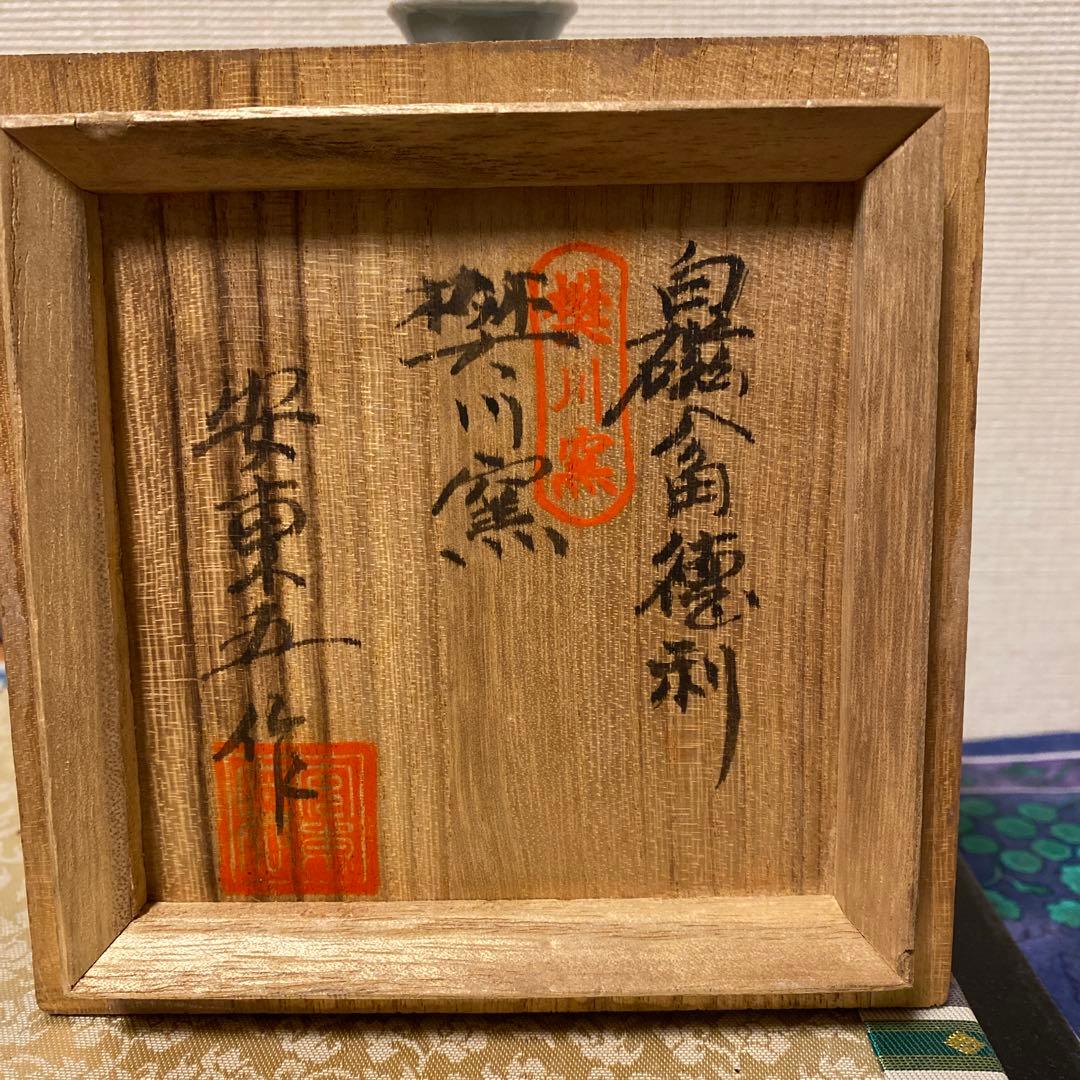 白磁八角徳利
樊川窯
樊川窯
安東五作